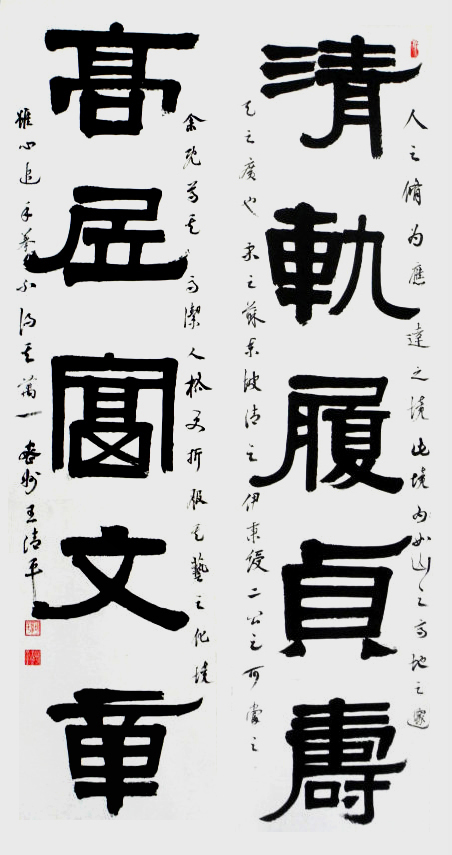 清軌履貞壽
人之脩為應達之境此境内如山之高地之邃
天之廣也宋之蘇東坡清之伊秉綬二公可當之
高居富文章
余既尊其高潔人格又折服其藝之化境
雖心追手摹不得其萬一王清平